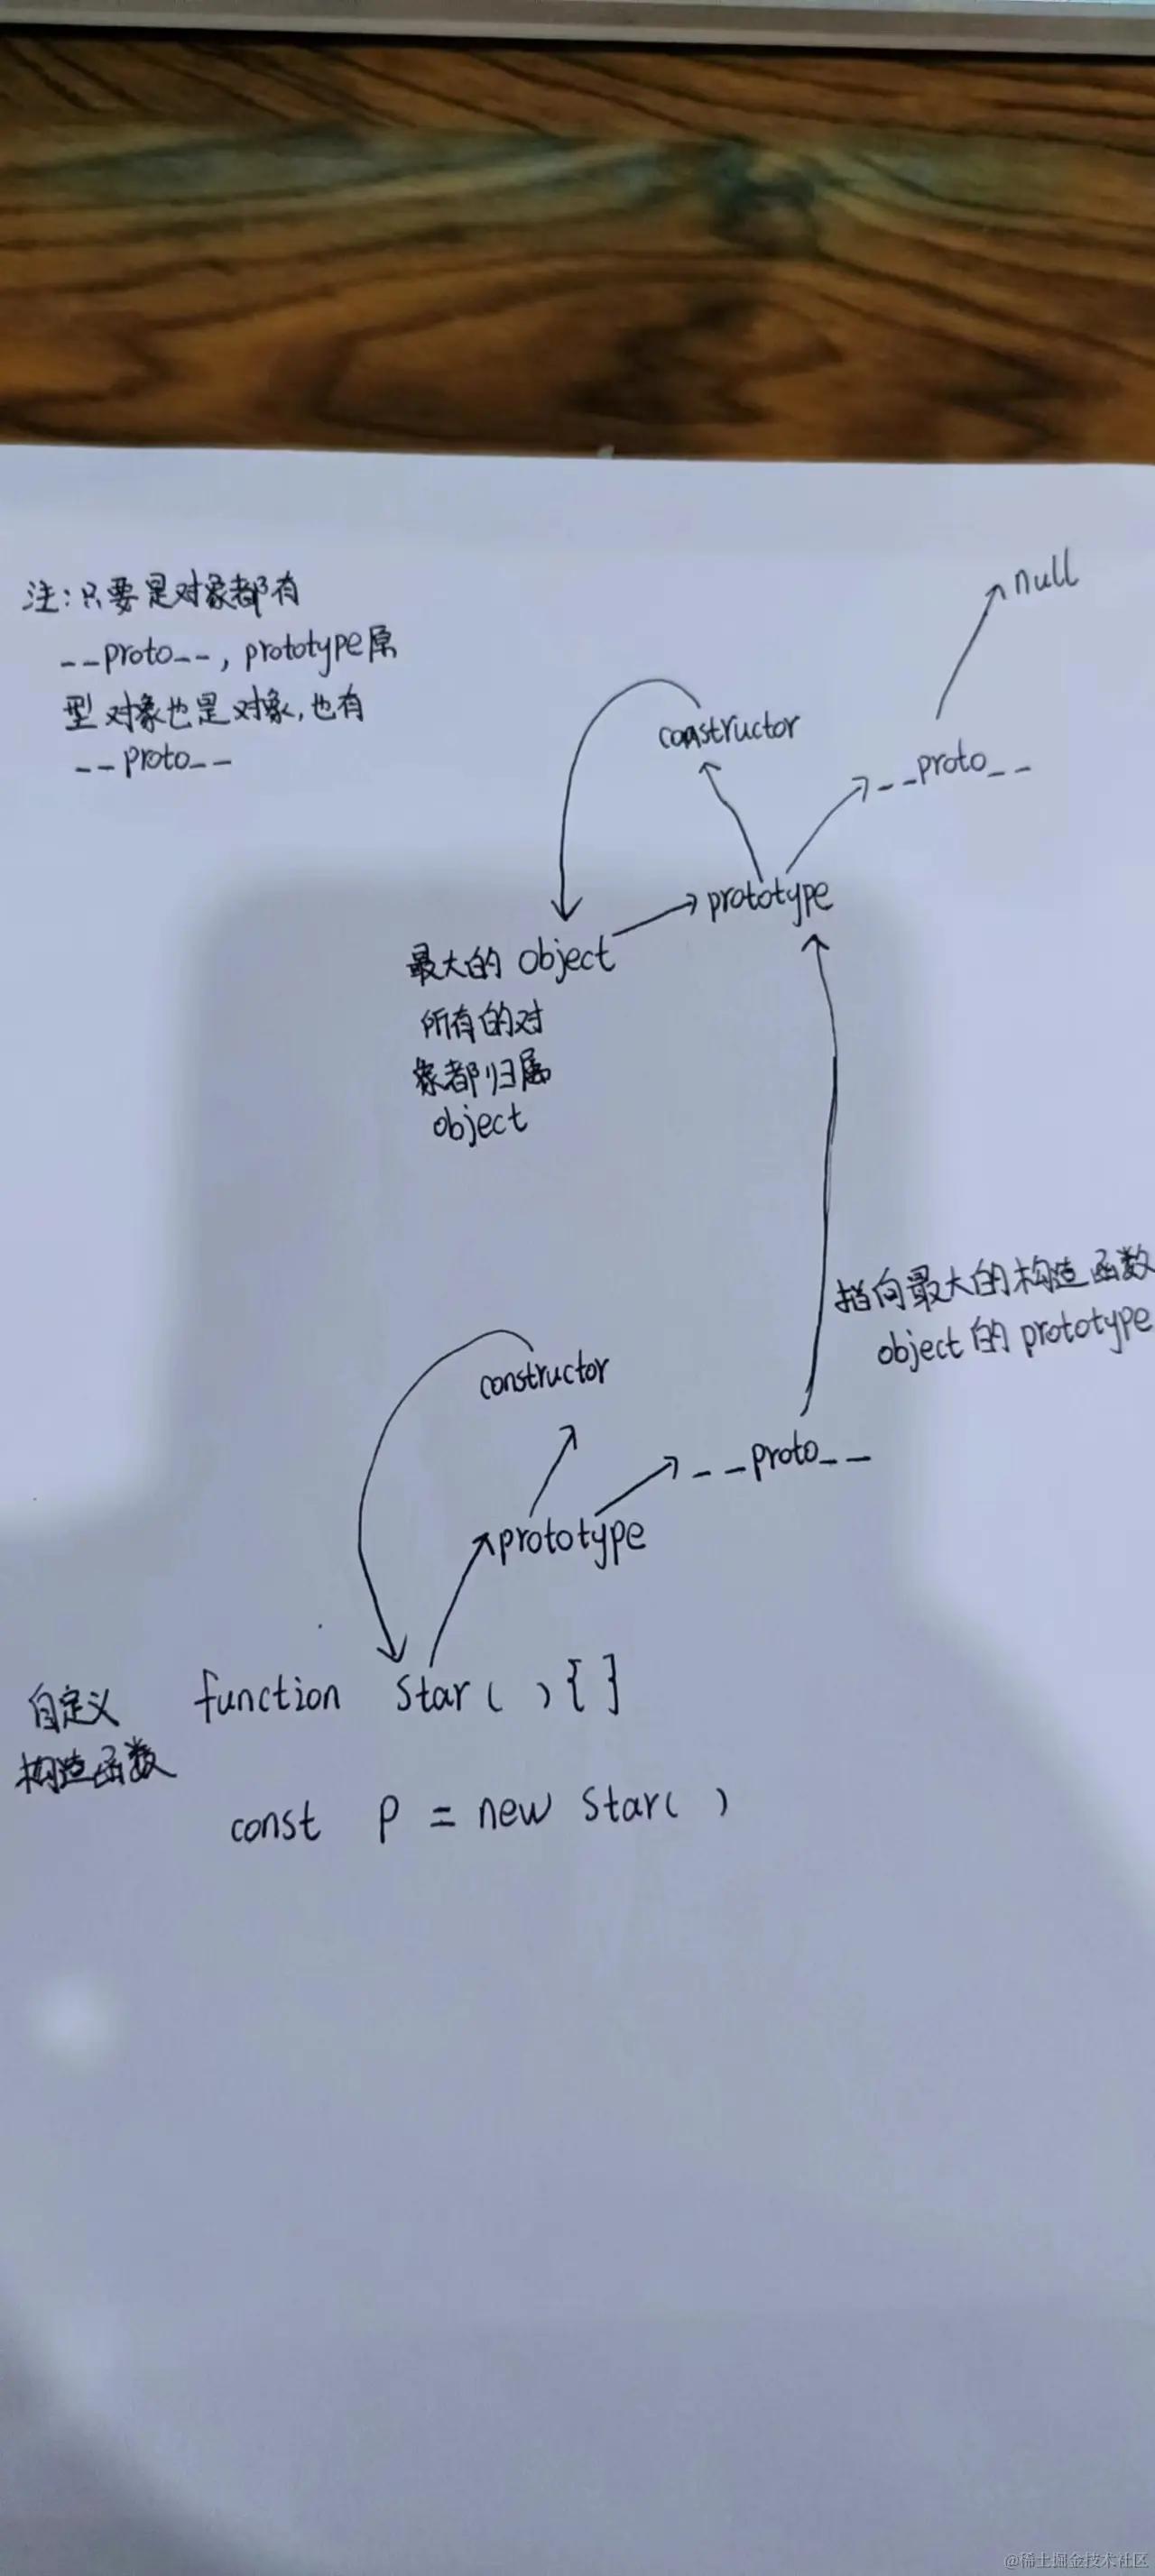 注:只要是对象都有
__proto__, prototype原
型对象也是对象,也有
__proto__
null
constructor
__proto__
prototype
最大的 object
所有的对
象都归属
object
指向最大的构造函数
object的prototype
constructor
__proto__
prototype
自定义
构造函数
function Star( ){}
const P = new Star( )
@稀土掘金技术社区